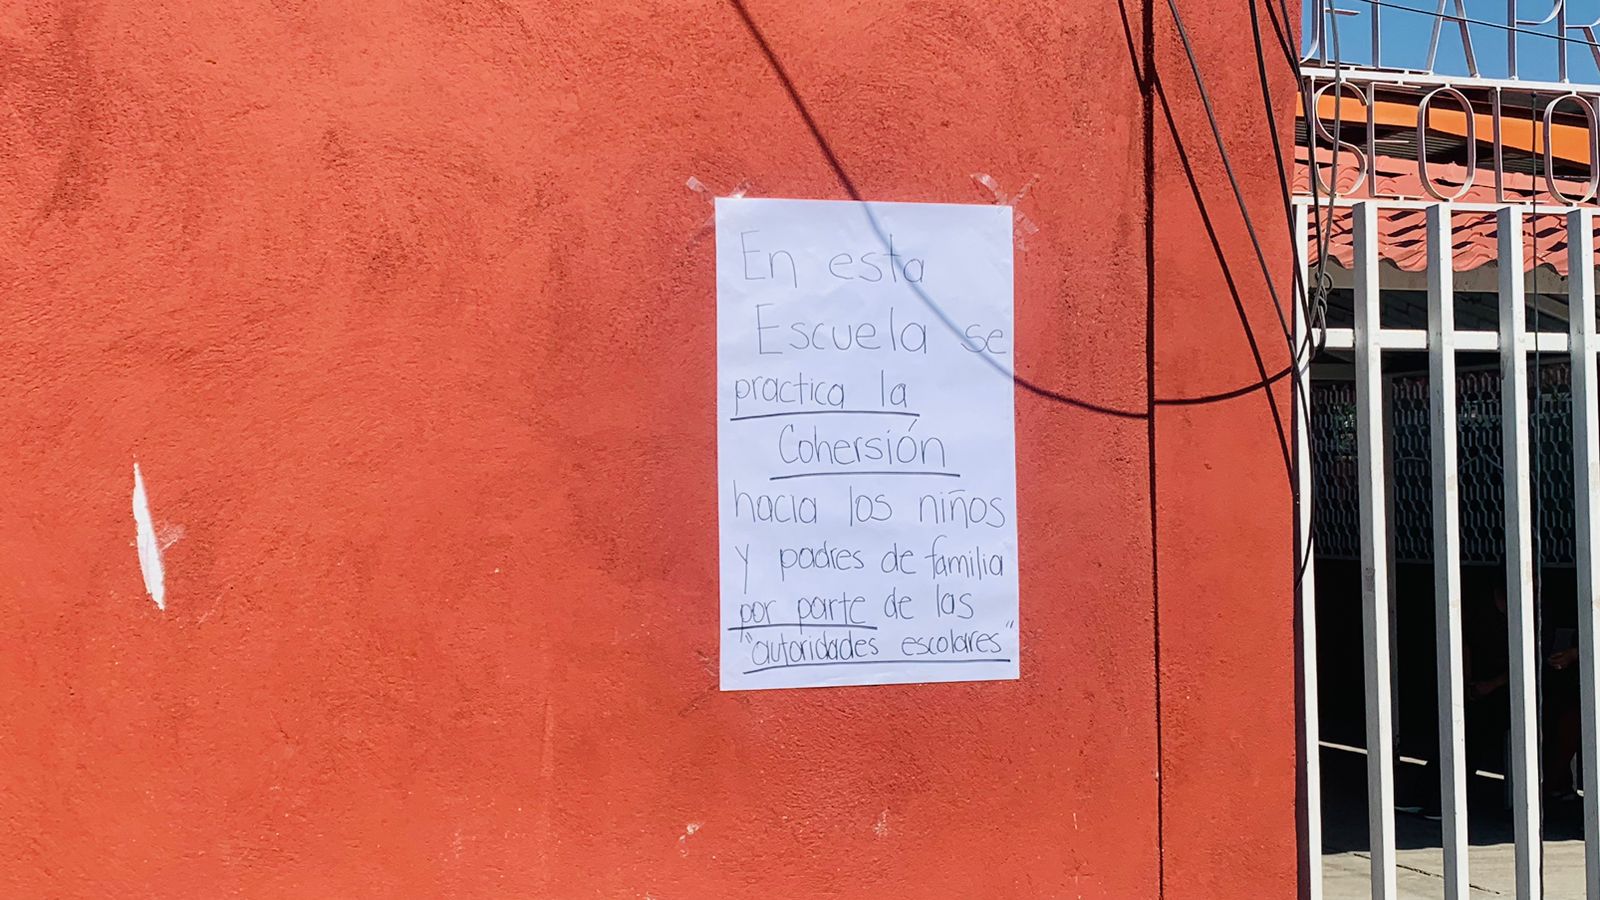 En esta
Escuela se
practica la
Cohersión
hacia los niños
y padres de familia
por parte de las
"autoridades escolares"
SOLO